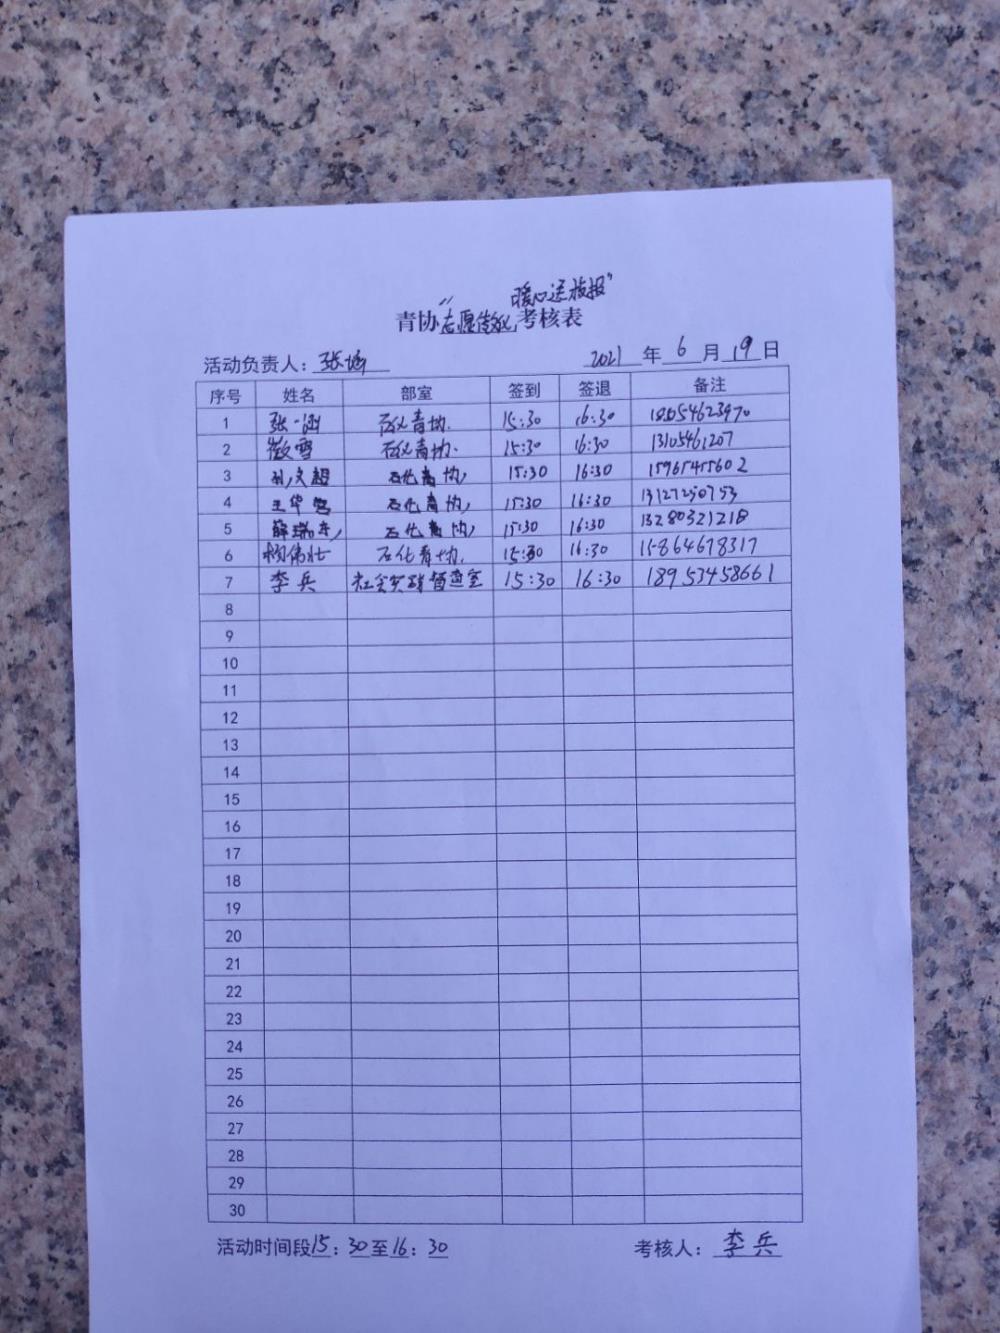 暖心送报"
青协"志愿 考核表
活动负责人：张
2021年6月19日
序号 姓名 部室 签到 签退 备注
1 张一涵 石化青协 15:30 16:30 18054623970
2 雪 石化青协 15:30 16:30 13105461207
3 孙文超 石化青协 15:30 16:30
4 王华 石化青协 15:30 16:30 13127250753
5 薛瑞 石化青协 15:30 16:30 13280321218
6 伟壮 石化青协 15:30 16:30 15864678317
7 李兵 社会实践督查室 15:30 16:30 18953458661
8
9
10
11
12
13
14
15
16
17
18
19
20
21
22
23
24
25
26
27
28
29
30
活动时间段15：30至16：30 考核人：李兵